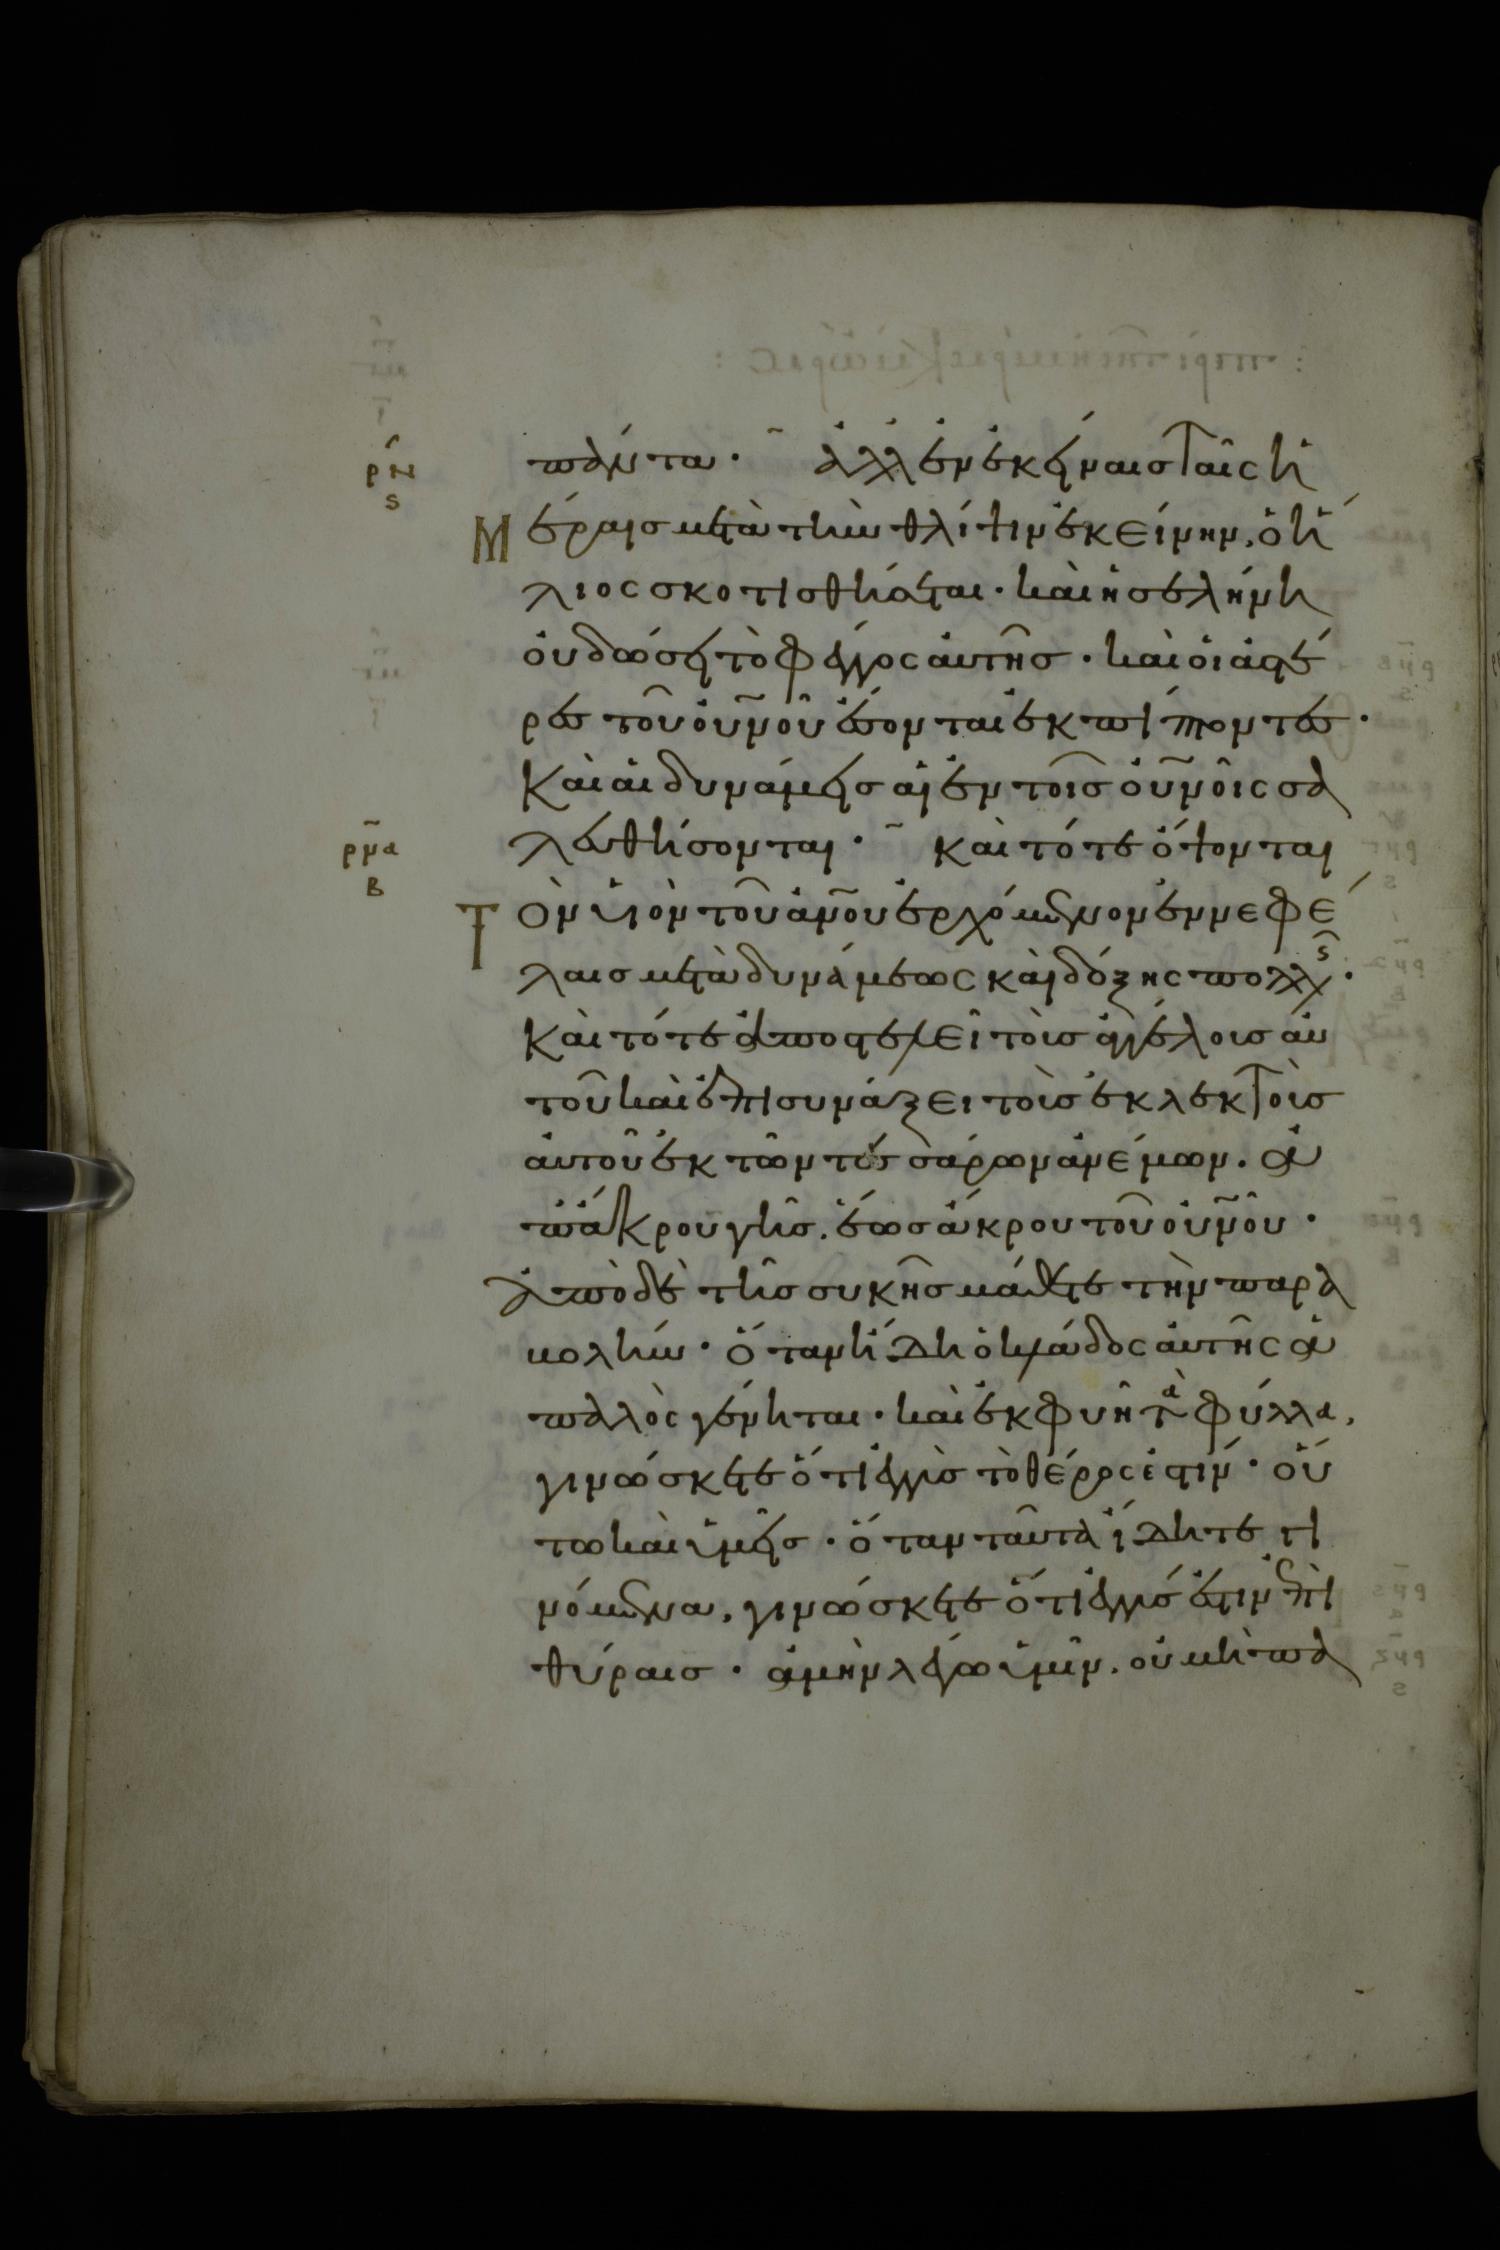 πάντα· ἀλλ ἐν ἐκείναις ταῖς ἡ
ρν
ς
μέραις μετὰ τὴν θλίψιν ἐκείνην, ὁ ἥ
λιος σκοτισθήσεται· καὶ ἡ σελήνη
οὐ δώσει τὸ φέγγος αὐτῆς· καὶ οἱ ἀστέ
ρες τοῦ οὐνοῦ ἔσονται ἐκπίπτοντες·
καὶ αἱ δυνάμεις αἱ ἐν τοῖς οὐνοῖς σα
λευθήσονται· καὶ τότε ὄψονται
ρνα
β
τὸν υἱὸν τοῦ ἀνοῦ ἐρχόμενον ἐν νεφέ
λαις μετὰ δυνάμεως καὶ δόξης πολλῆς·
καὶ τότε ἀποστελεῖ τοὺς ἀγγέλους αὐ
τοῦ καὶ ἐπισυνάξει τοὺς ἐκλεκτοὺς
αὐτοῦ ἐκ τῶν τεσσάρων ἀνέμων. ἀ
π ἄκρου γῆς. ἕως ἄκρου τοῦ οὐνοῦ·
ἀπὸ δὲ τῆς συκῆς μάθετε τὴν παρα
βολήν· ὅταν ἤδη ὁ κλάδος αὐτῆς ἁ
παλὸς γένηται· καὶ ἐκφύῃ τὰ φύλλα,
γινώσκετε ὅτι ἐγγὺς τὸ θέρος ἐστίν· οὕ
τω καὶ ὑμεῖς· ὅταν ταῦτα ἴδητε γι
νόμενα, γινώσκετε ὅτι ἐγγύς ἐστιν ἐπὶ
θύραις· ἀμὴν λέγω ὑμῖν, οὐ μὴ πα